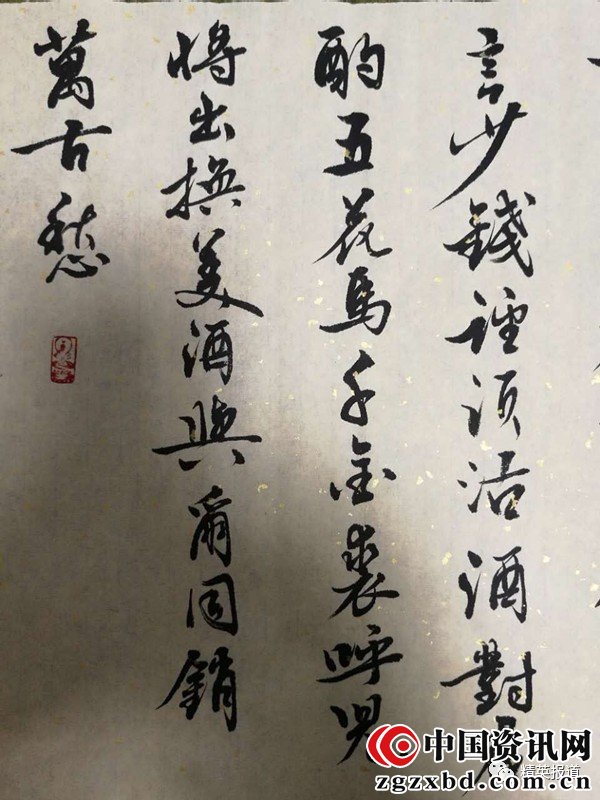 言少錢徑須沽酒對君
酌五花馬千金裘呼兒
将出換美酒與爾同銷
萬古愁
中国资讯网
zgzxbd.com.cn
精英报道